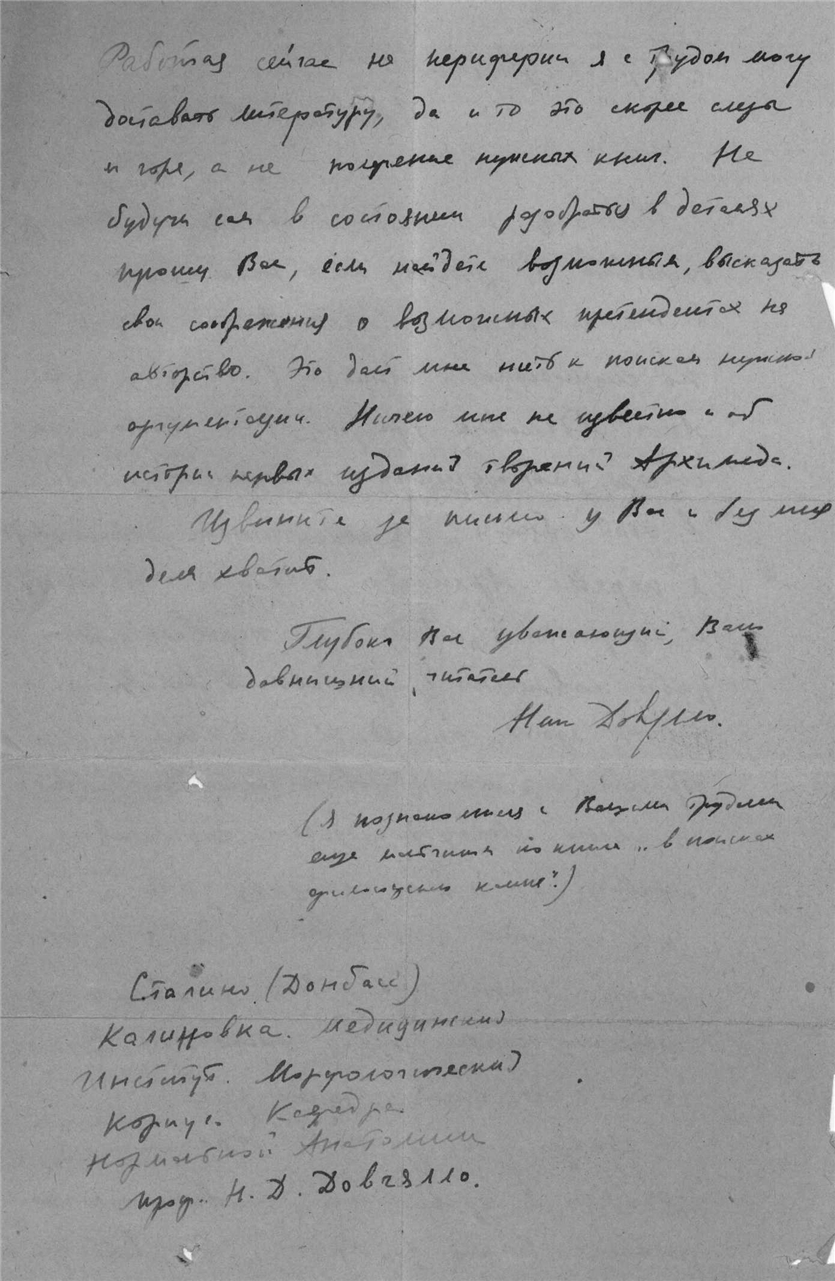 Работая сейчас на периферии я с трудом могу
доставать литературу, да и то это скорее слезы
и горе, а не получение нужных книг. Не
будучи сам в состоянии разобраться в деталях
прошу Вас, если найдете возможным, высказать
свои соображения о возможных претендентах на
авторство. Это даст мне нить к поискам нужной
аргументации. Ничего мне не известно и об
истории первых изданий творений Архимеда.
Извините за письмо у Вас и без них
дела хватит.
Глубоко Вас уважающий, Ваш
давнишний читатель
Ник Довгялло.
(Я познакомился с Вашими трудами
еще по книге „в поисках
философского камня".)
Сталино (Донбасс)
Калиновка. Медицинский
Институт. Морфологический
Корпус. Кафедра
Нормальной Анатомии
проф. Н. Д. Довгялло.